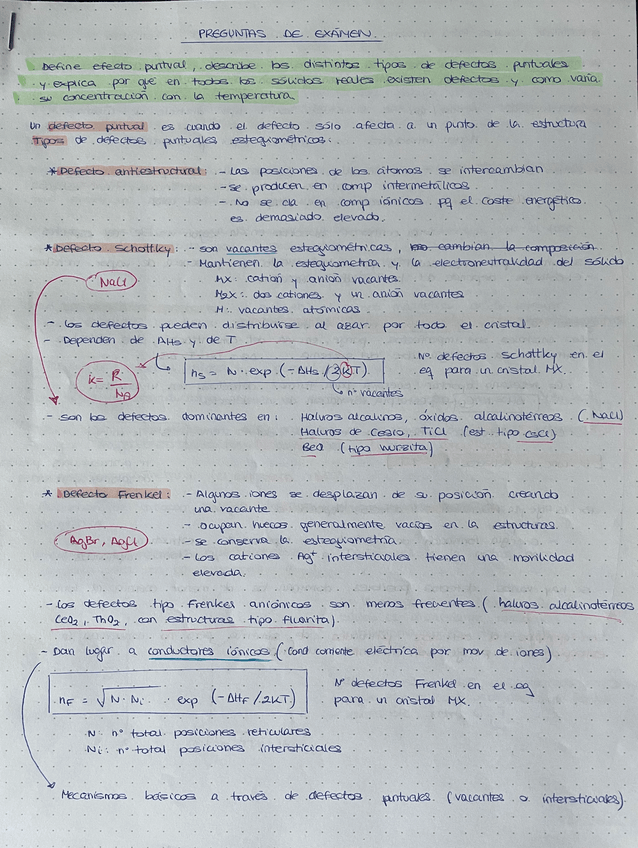 PREGUNTAS DE EXÁMEN.
Define efecto puntual, describe los distintos tipos de defectos puntuales
y explica por qué en todos los sólidos reales existen defectos y como varía
su concentración con la temperatura
Un defecto puntual es cuando el defecto sólo afecta a un punto de la estructura
Tipos de defectos puntuales estequiométricos:
* Defecto antiestructural: - Las posiciones de los átomos se intercambian
- se producen en comp intermetálicos.
- No se da en comp iónicos pq el coste energético
es demasiado elevado.
* Defecto Schottky: - son vacantes estequiométricas, no cambian la composición.
- Mantienen la estequiometría y la electroneutralidad del sólido
NaCl
MX: catión y anión vacantes.
M2X: dos cationes y un anión vacantes
M: vacantes atómicas.
- Los defectos pueden distribuirse al azar por todo el cristal.
- Dependen de ΔHs y de T
k = R / NA
ns = N · exp (-ΔHs / 2kT).
Nº defectos Schottky en el
eq para un cristal MX.
nº vacantes
- son los defectos dominantes en: Haluros alcalinos, óxidos alcalinotérreos (NaCl)
Haluros de Cesio, TlCl (est. tipo CsCl)
BeO (tipo wurzita)
* Defecto Frenkel: - Algunos iones se desplazan de su posición creando
una vacante.
- ocupan huecos generalmente vacíos en la estructuras.
AgBr, AgCl
- se conserva la estequiometría.
- Los cationes Ag+ intersticiales tienen una movilidad
elevada.
- Los defectos tipo Frenkel aniónicos son menos frecuentes (haluros alcalinotérreos
CeO2, ThO2, con estructuras tipo fluorita).
- Dan lugar a conductores iónicos (Cond corriente eléctrica por mov de iones)
nF = √N · Ni · exp (-ΔHF / 2KT)
Nº defectos Frenkel en el eq
para un cristal MX.
N: nº total posiciones reticulares
Ni: nº total posiciones intersticiales
Mecanismos básicos a través de defectos puntuales (vacantes o intersticiales).